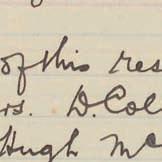 of this res
rs. D. Col
Hugh Mc